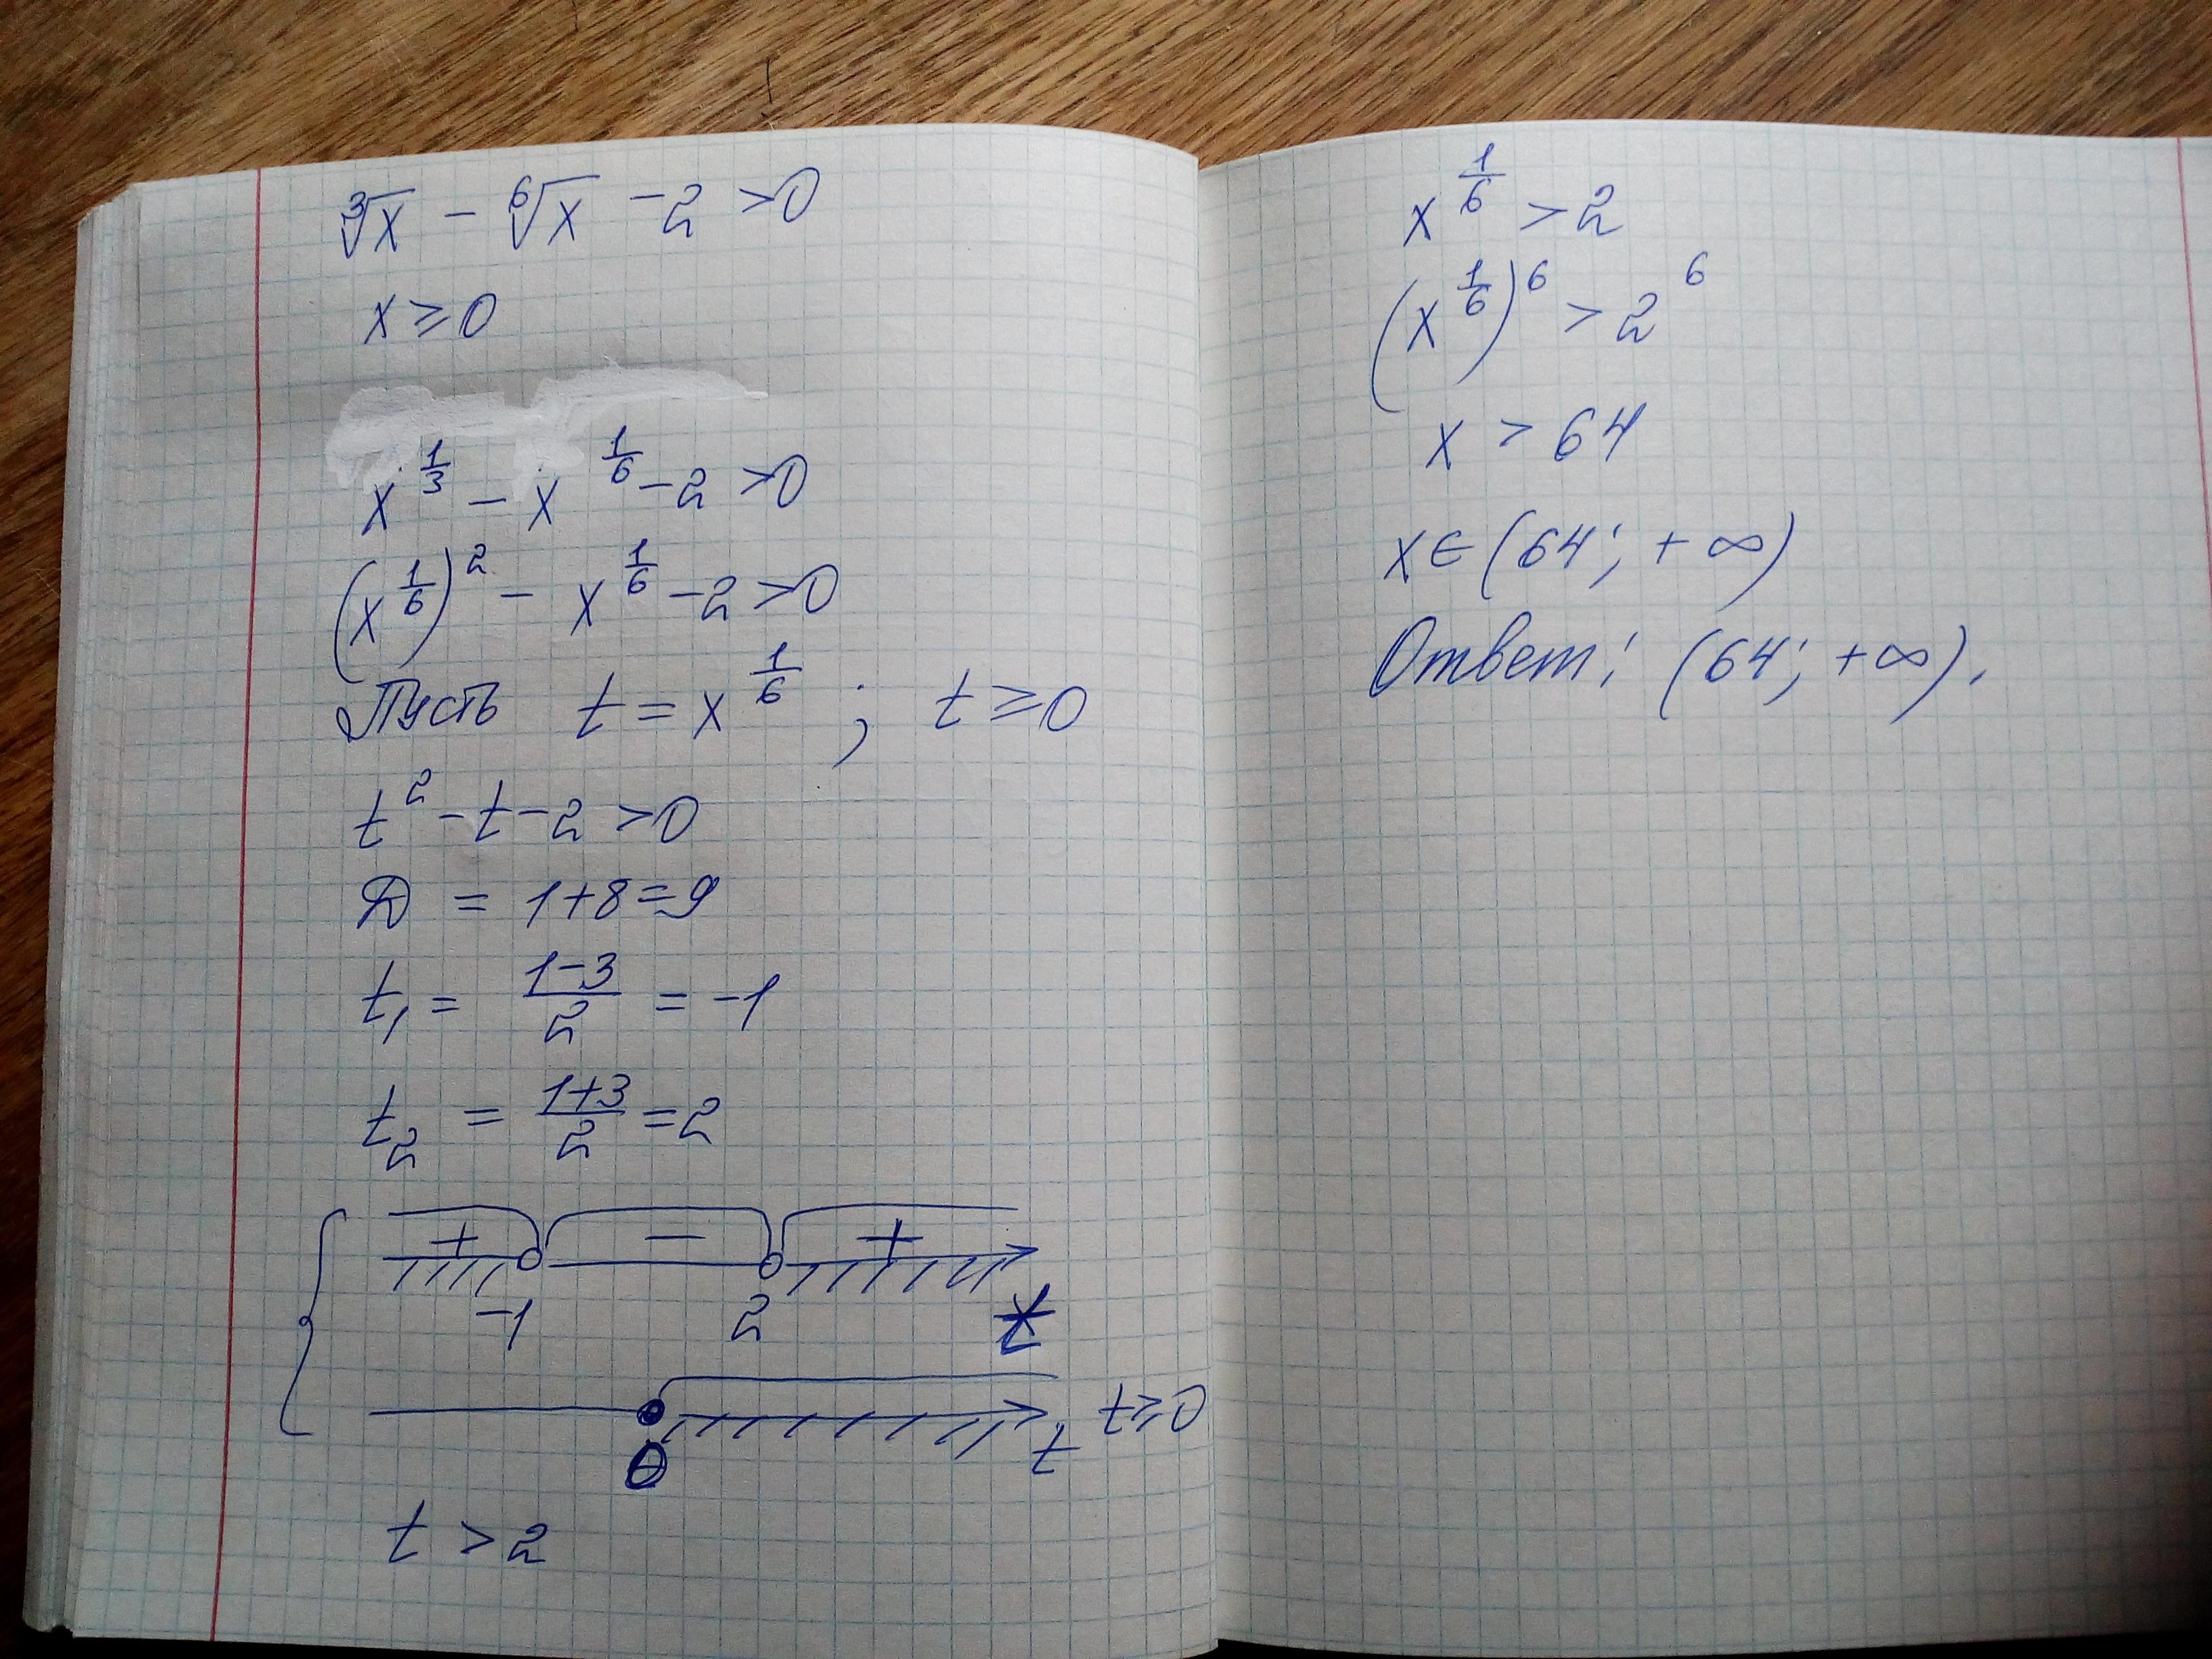 ∛x − ⁶√x − 2 > 0
x ≥ 0
x^(1/3) − x^(1/6) − 2 > 0
(x^(1/6))² − x^(1/6) − 2 > 0
Пусть t = x^(1/6); t ≥ 0
t² − t − 2 > 0
D = 1+8=9
t₁ = (1−3)/2 = −1
t₂ = (1+3)/2 = 2
+ − +
−1 2 t
t ≥ 0
0 t
t > 2
x^(1/6) > 2
(x^(1/6))⁶ > 2⁶
x > 64
x ∈ (64; +∞)
Ответ: (64; +∞).